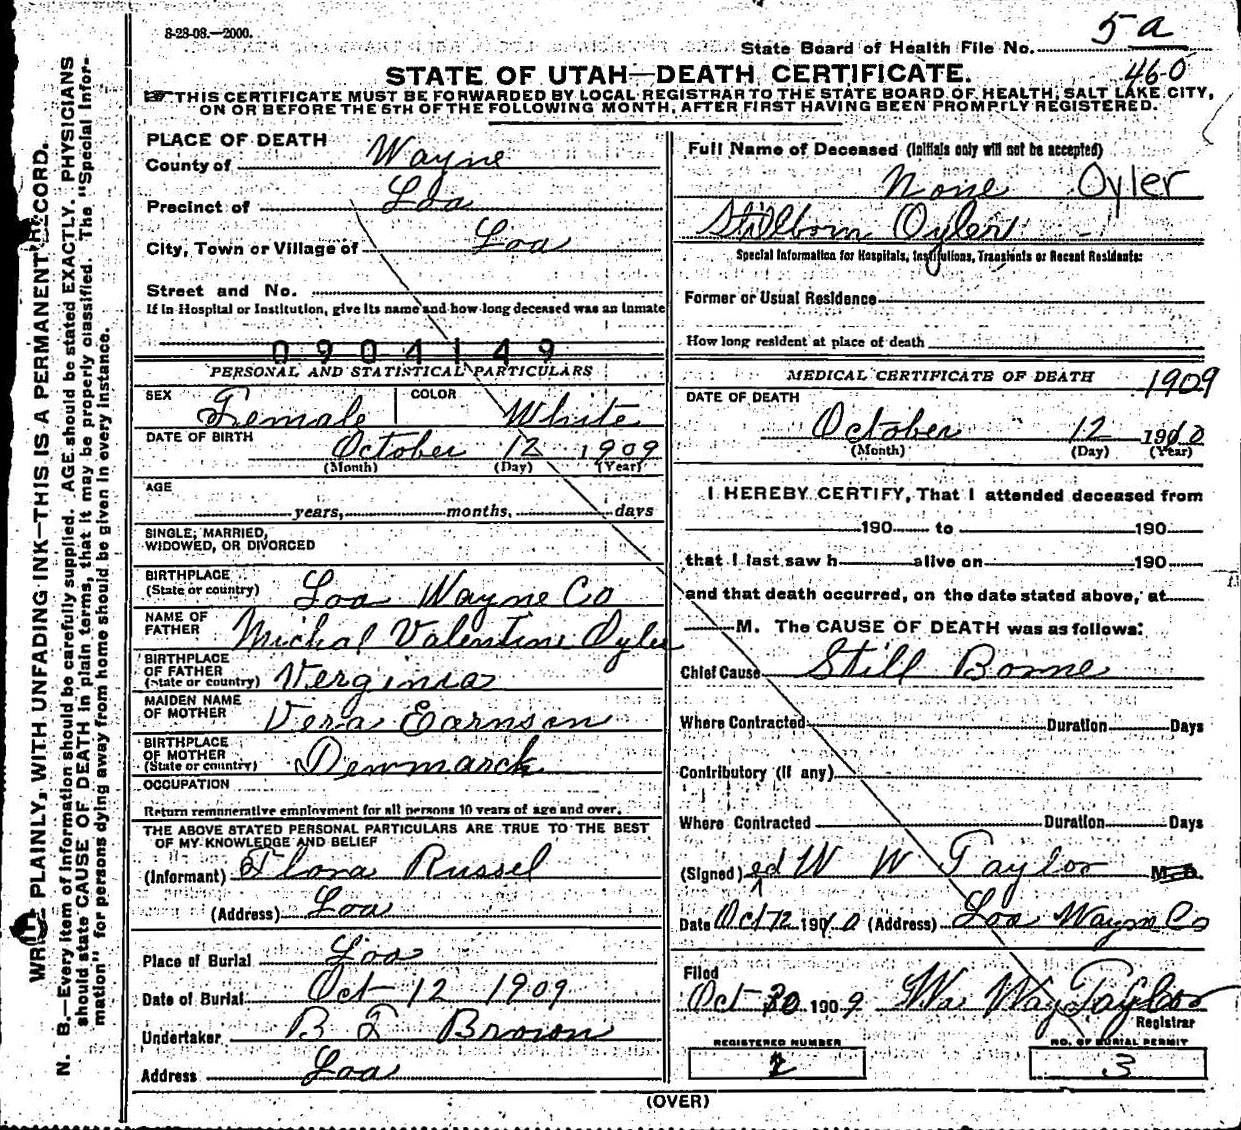 8-28-08.—2000.
State Board of Health File No. 5 a
460
STATE OF UTAH—DEATH CERTIFICATE.
THIS CERTIFICATE MUST BE FORWARDED BY LOCAL REGISTRAR TO THE STATE BOARD OF HEALTH, SALT LAKE CITY,
ON OR BEFORE THE 5TH OF THE FOLLOWING MONTH, AFTER FIRST HAVING BEEN PROMPTLY REGISTERED.
PLAINLY, WITH UNFADING INK—THIS IS A PERMANENT RECORD.
N. B.—Every item of information should be carefully supplied. AGE should be stated EXACTLY. PHYSICIANS
should state CAUSE OF DEATH in plain terms, that it may be properly classified. The "Special Infor-
mation" for persons dying away from home should be given in every instance.
PLACE OF DEATH
County of Wayne
Precinct of Loa
City, Town or Village of Loa
Street and No.
If in Hospital or Institution, give its name and how long deceased was an inmate
0904149
PERSONAL AND STATISTICAL PARTICULARS
SEX Female COLOR White
DATE OF BIRTH October 12 1909
(Month) (Day) (Year)
AGE
years, months, days
SINGLE, MARRIED,
WIDOWED, OR DIVORCED
BIRTHPLACE
(State or country) Loa Wayne Co
NAME OF
FATHER Michal Valentine Oyler
BIRTHPLACE
OF FATHER
(State or country) Verginia
MAIDEN NAME
OF MOTHER Vera Earnson
BIRTHPLACE
OF MOTHER
(State or country) Denmarck
OCCUPATION
Return remunerative employment for all persons 10 years of age and over.
THE ABOVE STATED PERSONAL PARTICULARS ARE TRUE TO THE BEST
OF MY KNOWLEDGE AND BELIEF
(Informant) Flora Russel
(Address) Loa
Place of Burial Loa
Date of Burial Oct 12 1909
Undertaker B F Brown
Address Loa
Full Name of Deceased (Initials only will not be accepted)
None Oyler
Stillborn Oyler
Special Information for Hospitals, Institutions, Transients or Recent Residents:
Former or Usual Residence
How long resident at place of death
MEDICAL CERTIFICATE OF DEATH
1909
DATE OF DEATH
October 12 1910
(Month) (Day) (Year)
I HEREBY CERTIFY, That I attended deceased from
190 to 190
that I last saw h alive on 190
and that death occurred, on the date stated above, at
M. The CAUSE OF DEATH was as follows:
Chief Cause Still Borne
Where Contracted Duration Days
Contributory (If any)
Where Contracted Duration Days
(Signed) ed W W Taylor M. D.
Date Oct 12 1910 (Address) Loa Wayne Co
Filed
Oct 30 1909 Wm Way Taylor
Registrar
REGISTERED NUMBER
NO. OF BURIAL PERMIT
3
(OVER)